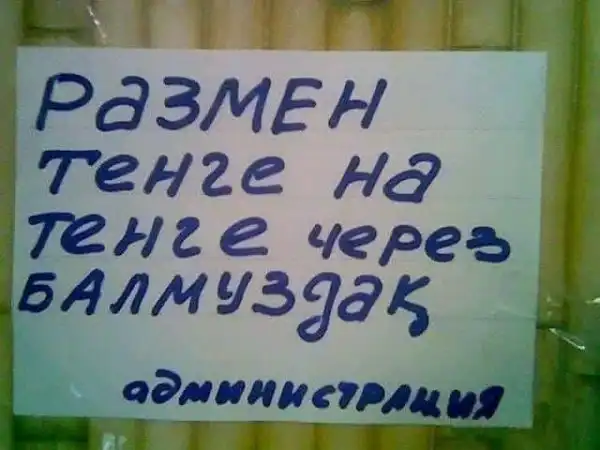 РАЗМЕН
тенге на
тенге через
БАЛМУЗДАҚ
администрация